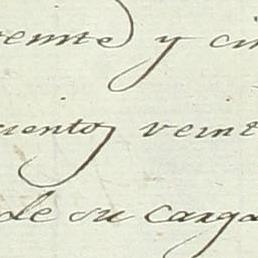 veinte y cin
ciento veint
de su carga